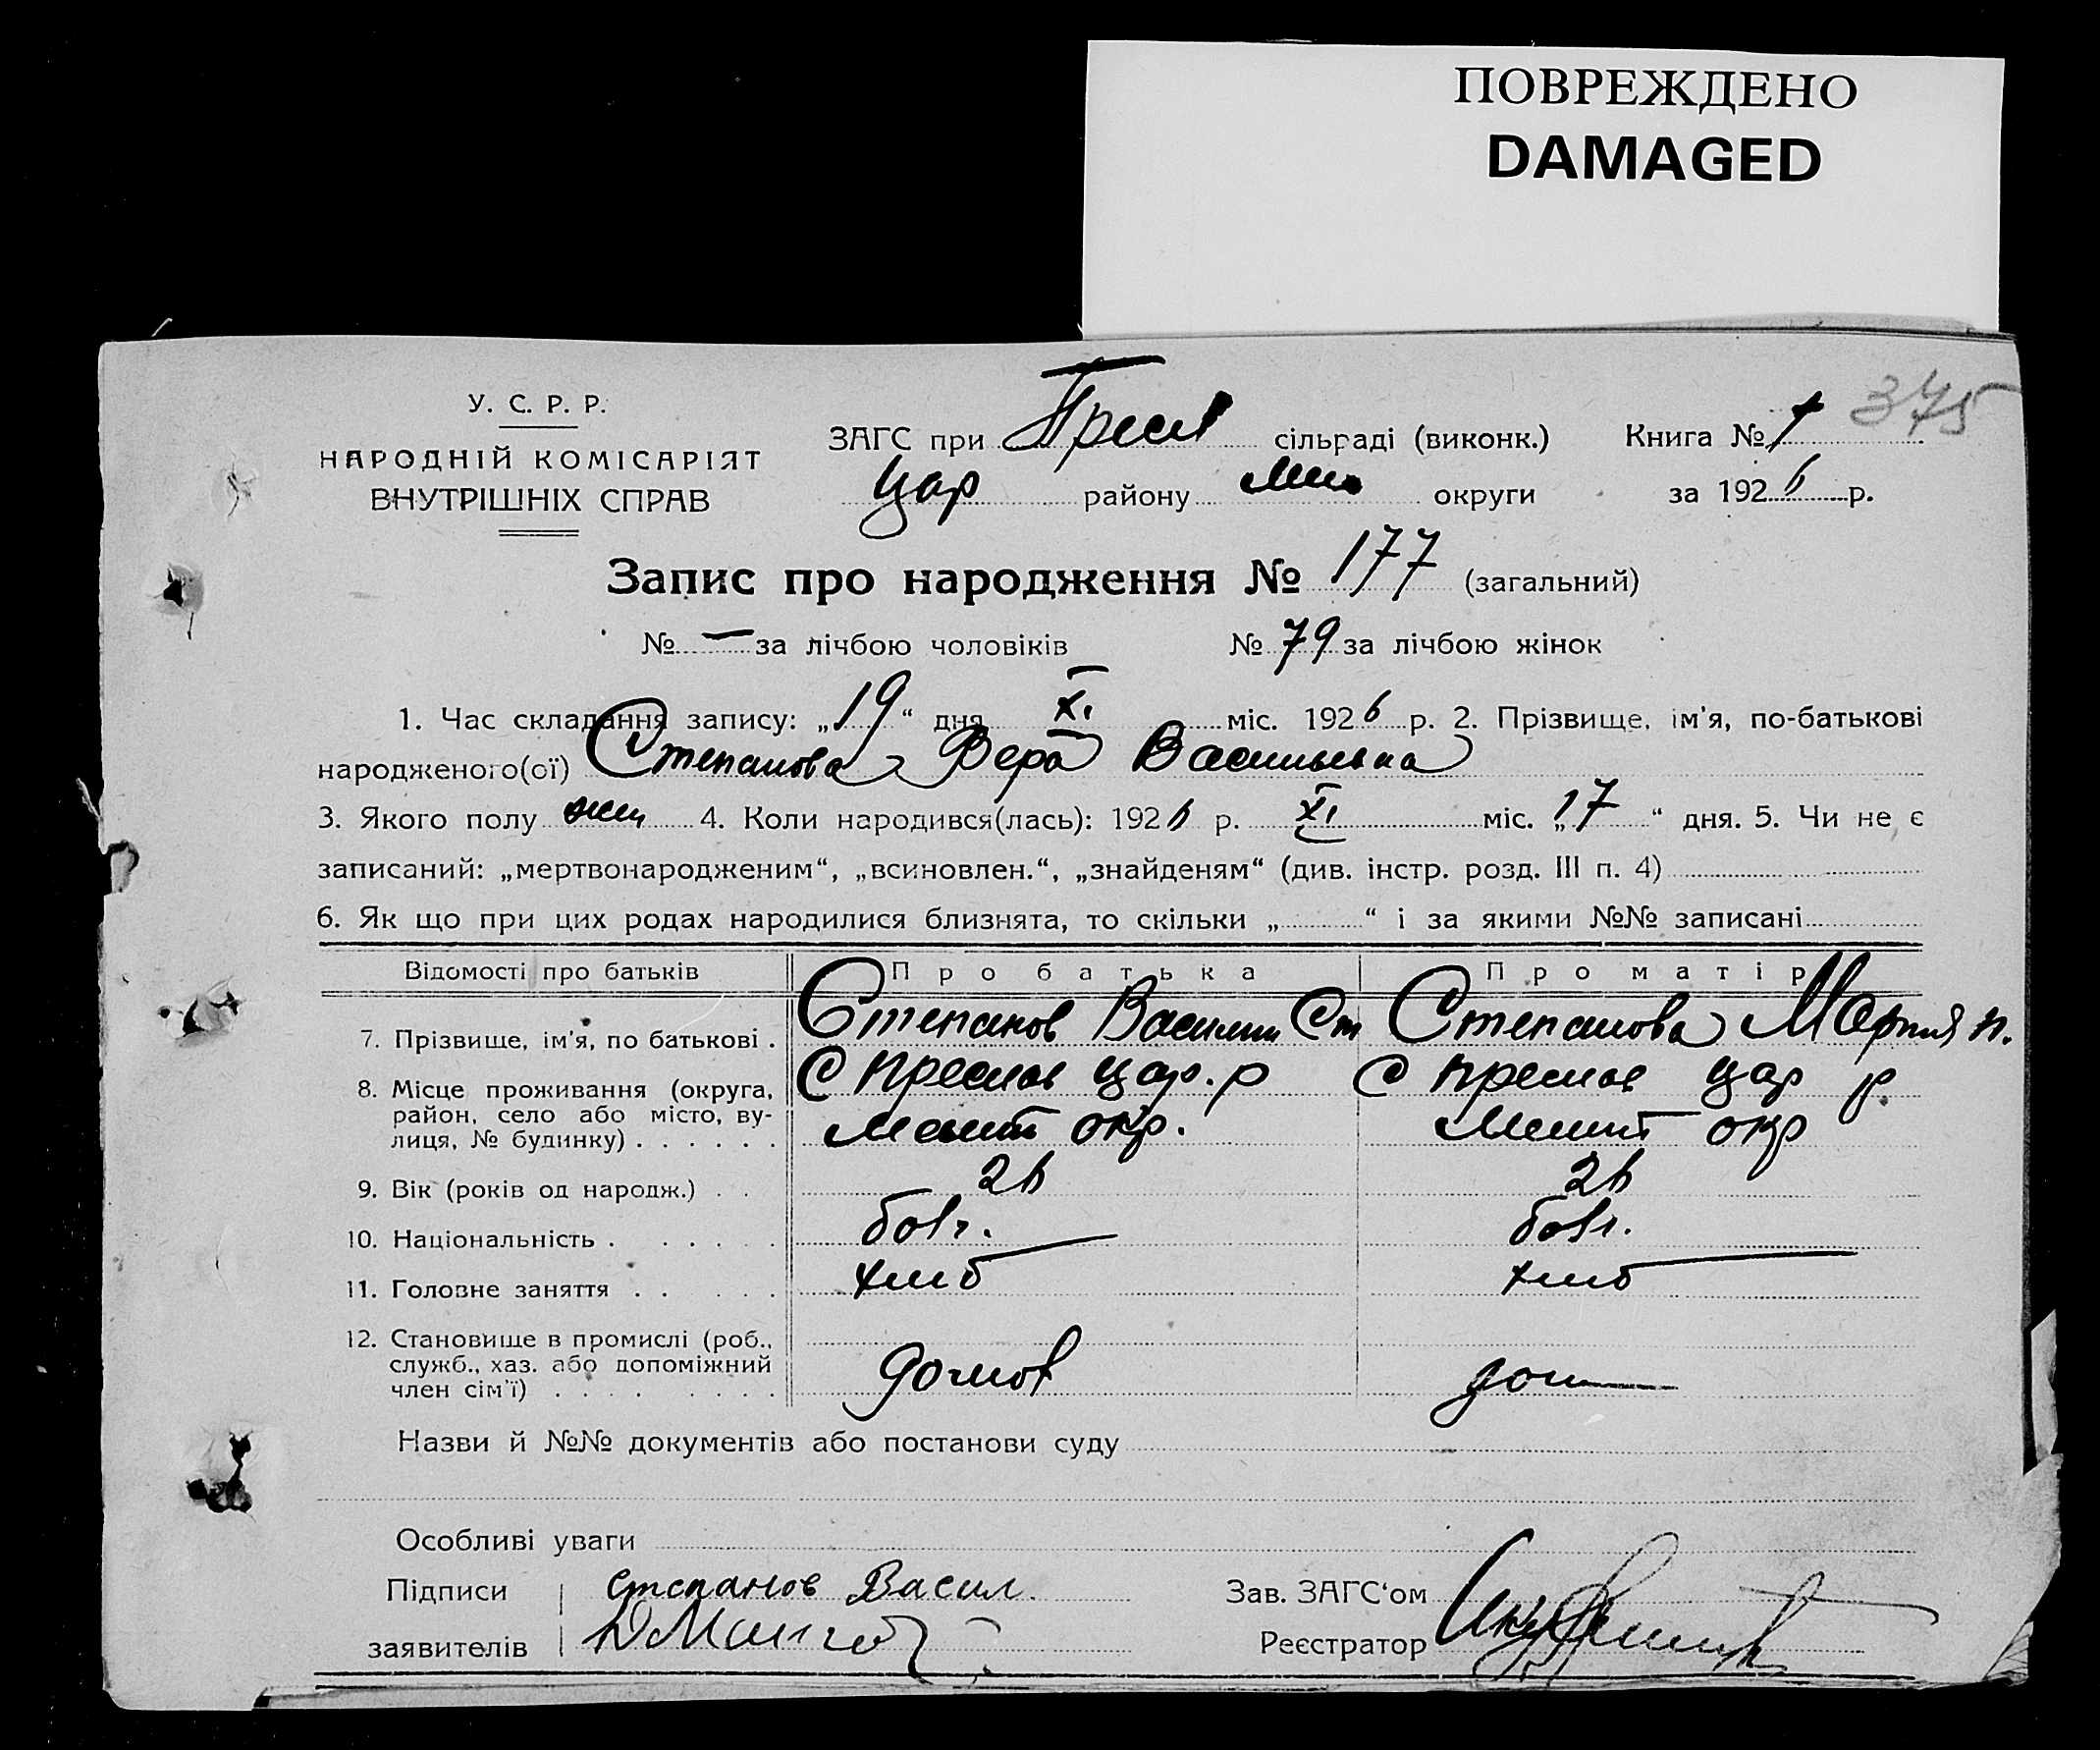 ПОВРЕЖДЕНО
DAMAGED
375
У. С. Р. Р.
НАРОДНІЙ КОМІСАРІЯТ
ВНУТРІШНІХ СПРАВ
ЗАГС при Пресл сільраді (виконк.) Книга № 1
Цар району Мел округи за 1926 р.
Запис про народження № 177 (загальний)
№ — за лічбою чоловіків № 79 за лічбою жінок
1. Час складання запису: „19“ дня XI міс. 1926 р. 2. Прізвище, ім'я, по-батькові
народженого(ої) Степанова Вера Васильевна
3. Якого полу жен 4. Коли народився(лась): 1926 р. XI міс. „17“ дня. 5. Чи не є
записаний: „мертвонародженим“, „всиновлен.“, „знайденям“ (див. інстр. розд. III п. 4)
6. Як що при цих родах народилися близнята, то скільки „ “ і за якими №№ записані
Відомості про батьків Про батька Про матір
7. Прізвище, ім'я, по батькові . Степанов Василий Ст Степанова Мария п.
8. Місце проживання (округа, район, село або місто, вулиця, № будинку) . . . . . . С Преслав Цар. р С Преслав Цар р.
Мелит окр. Мелит окр
9. Вік (років од народж.) . . 26 26
10. Національність . . . . . . болг. болг.
11. Головне заняття . . . . . хліб хліб
12. Становище в промислі (роб., служб., хаз. або допоміжний член сім'ї) . . . . . . . .
Назви й №№ документів або постанови суду
Особливі уваги
Підписи Степанов Васил.
заявителів
Зав. ЗАГС‘ом
Реєстратор